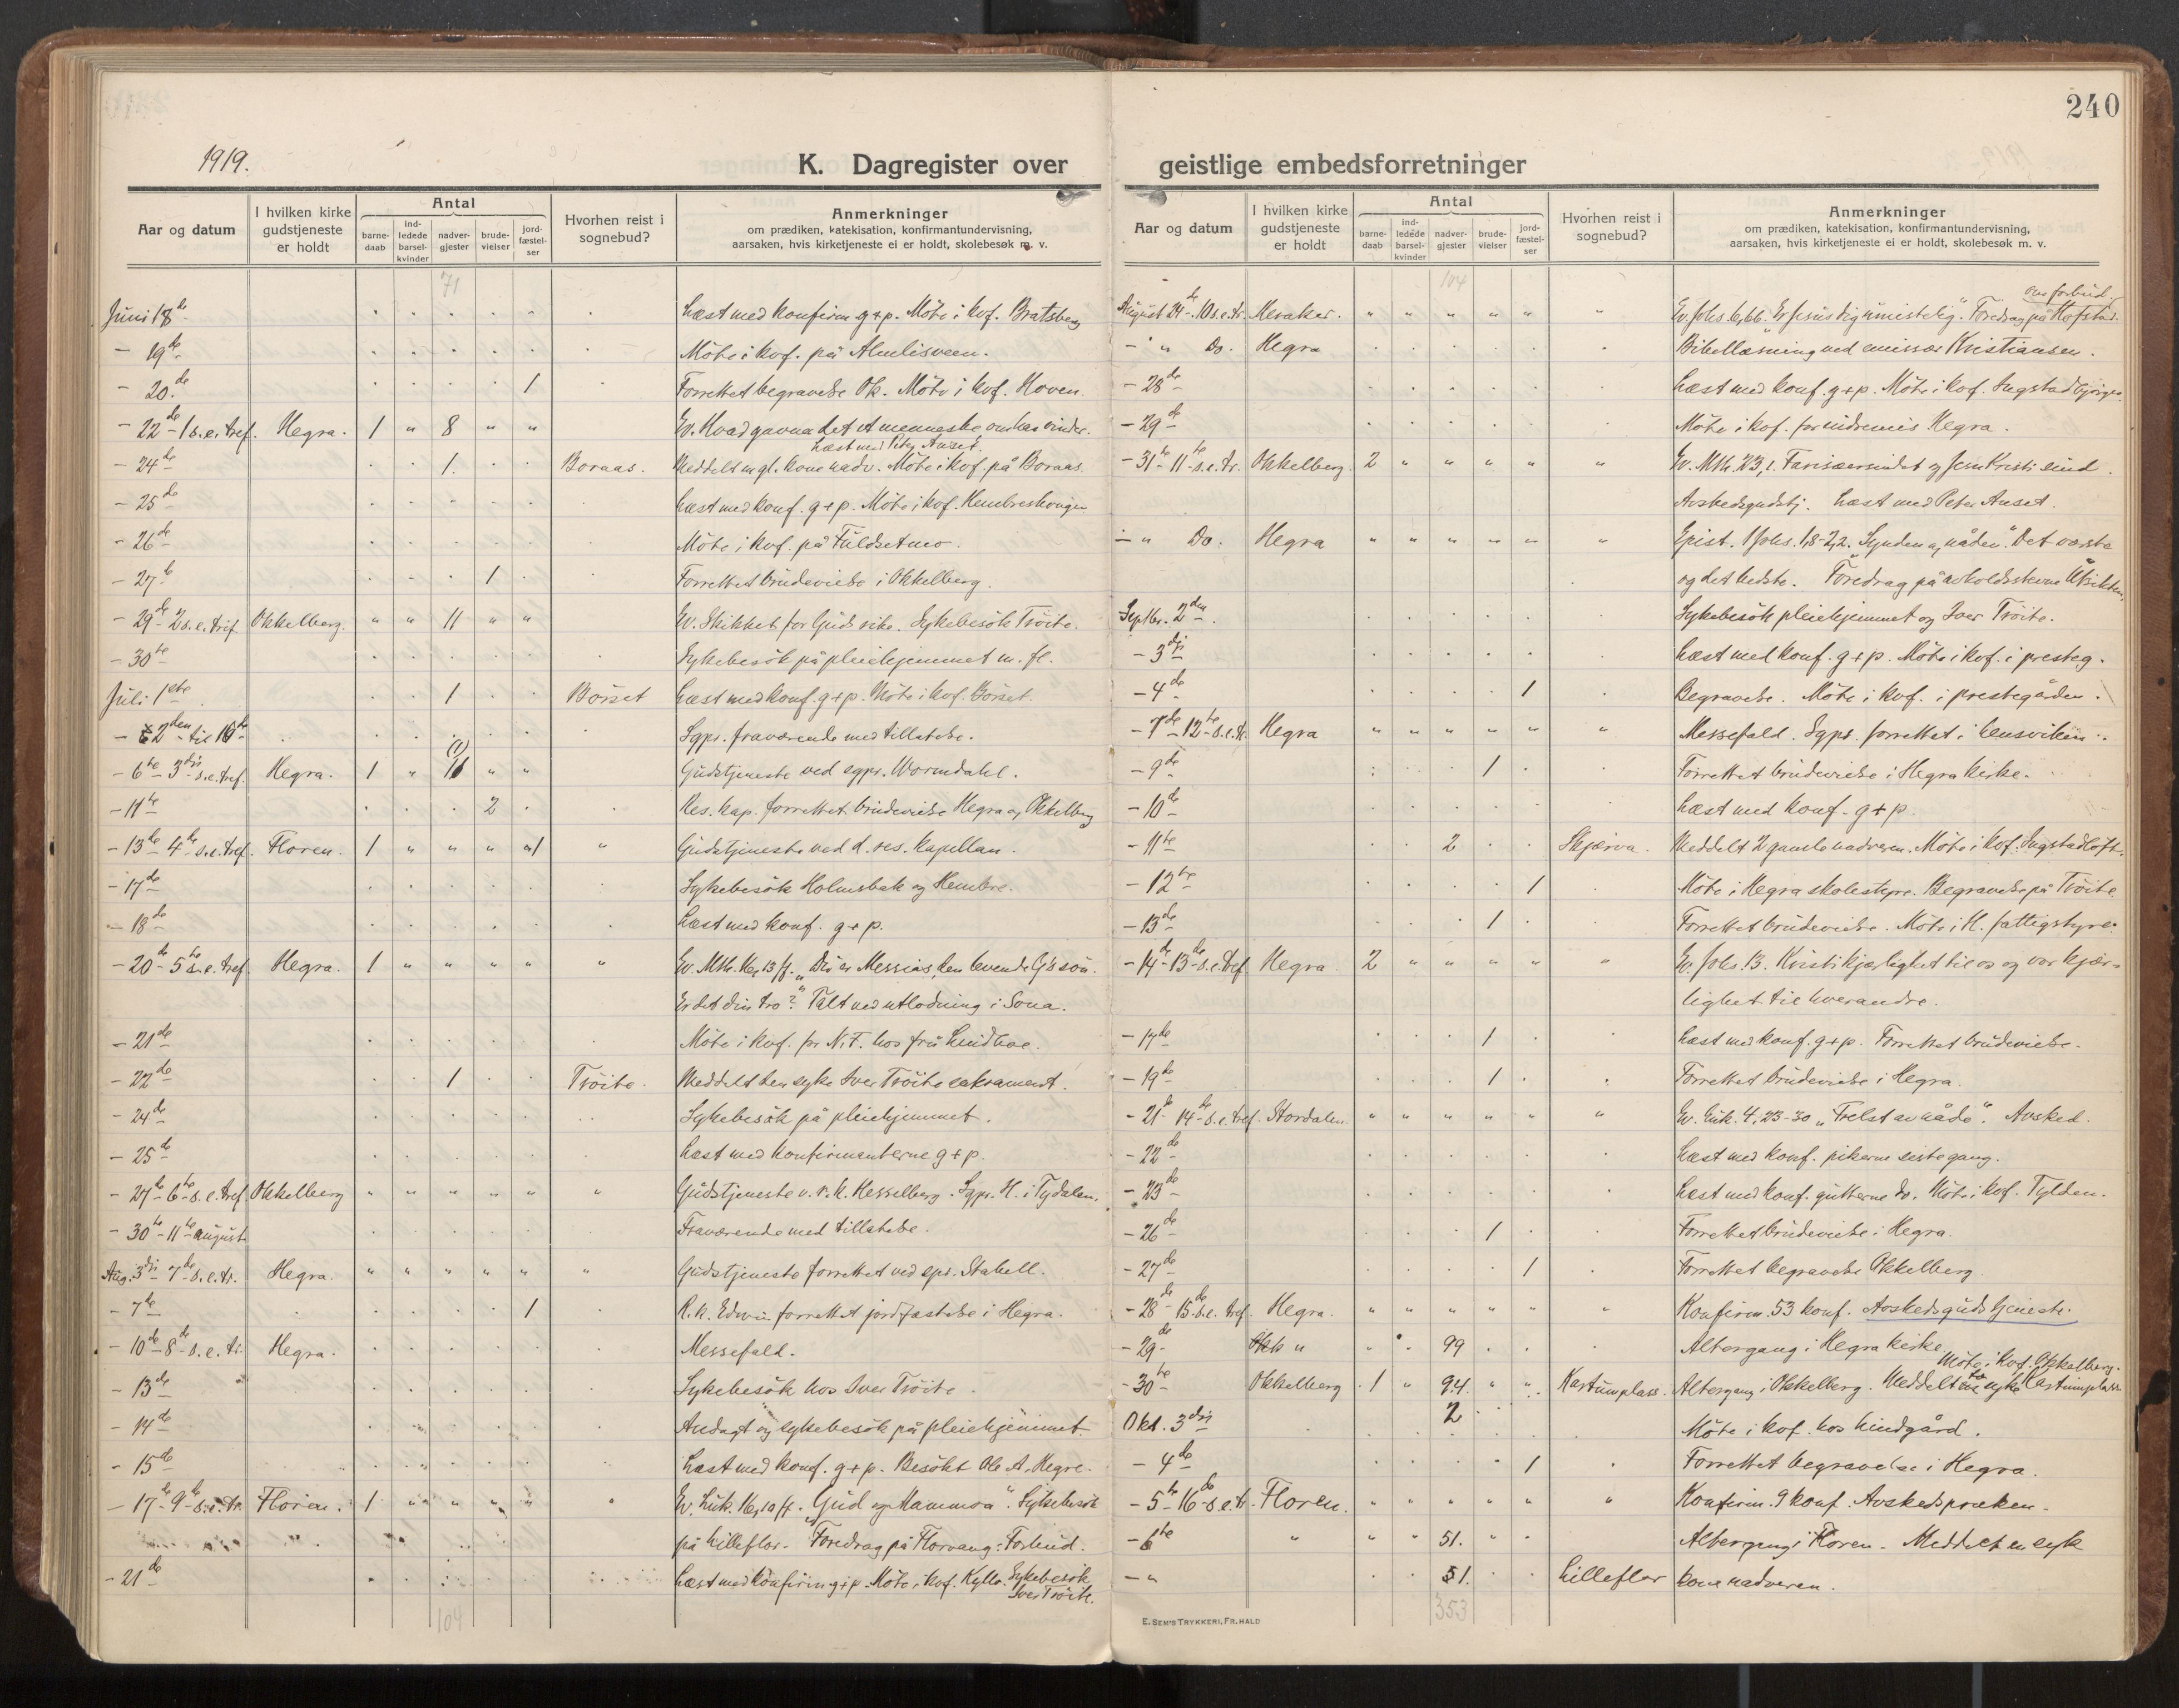 240
1919.
K. Dagregister over geistlige embedsforretninger
Aar og datum
I hvilken kirke gudstjeneste er holdt
Antal
barne-daab
ind-ledede barsel-kvinder
nadver-gjester
brude-vielser
jord-fæstel-ser
Hvorhen reist i sognebud?
Anmerkninger
om prædiken, katekisation, konfirmantundervisning,
aarsaken, hvis kirketjeneste ei er holdt, skolebesøk m. v.
71
Juni 18de Læst med konfirm g+p. Möte i kvf. Bratsberg
- 19de Möte i kvf. på Almlisveen.
- 20de 1 Forrettet begravelse Ok. Möte i kvf. Hoven.
- 22de 1 s.e. tref. Hegra. 1 " 8 " " Ev. Hvad gavner det et menneske om han vinder.
Læst med Peter Auset.
- 24de 1. Boraas. Meddelt en gl. kone nadv. Möte i kvf. på Boraas.
- 25de Læst med konf. g+p. Möte i kvf. Hembreshaugen
- 26de Möte i kvf. på Fuldsetmo.
- 27de 1 Forrettet brudevielse i Okkelberg.
- 29de 2 s.e. trif. Okkelberg. " " 11 " " Ev. Skikket for Guds rike. Sykebesök Tröite.
- 30te Sykebesök på pleiehjemmet m. fl.
Juli 1ste 1 Börset Læst med konf. g+p. Möte i kvf. Börset.
- 2den til 10de Sgpr. fraværende med tillatelse.
- 6te 3dje s.e. tref. Hegra. 1 " (1) " " Gudstjeneste ved sgpr. Wormdahl.
- 11te 2 Res. kap. forrettet brudevielse Hegra og Okkelberg
- 13de 4de s.e. tref. Floren. 1 " " " 1 " Gudstjeneste ved d. res. kapellan.
- 17de Sykebesök Holmsbak og Hembre.
- 18de Læst med konf. g+p.
- 20de 5te s.e. tref. Hegra. 1 " " " " " Ev. Mth. 16,13 ff. "Du er Messias, den levende G's sön.
Er det din tro?" Talt ved utlodning i Sona.
- 21de Möte i kvf. for N.F. hos fru Lindboe.
- 22de 1 Tröite. Meddelt den syke Iver Tröite sakrament.
- 24de Sykebesök på pleiehjemmet.
- 25de Læst med konfirmanterne g+p.
- 27de 6te s.e. tref. Okkelberg " " " " " " Gudstjeneste v. r. k. Hesselberg. Sgpr. H. i Tydalen.
- 30te - 11te august Fraværende med tillatelse.
Aug. 3dje 7de s.e. tr. Hegra. " " " " " " Gudstjeneste forrettet ved spr. Stabell.
- 7de 1 R. k. Edwin forrettet jordfæstelse i Hegra.
- 10de 8de s.e. tr. Hegra. Messefald.
- 13de Sykebesök hos Iver Tröite.
- 14de Andagt og sykebesök på pleiehjemmet.
- 15de Læst med konf. g+p. Besökt Ole A. Hegre.
- 17de 9de s.e. tr. Floren. 1 " " " " " Ev. Luk. 16,10 ff. "Gud og Mammon". Sykebesök
på Lilleflor. Foredrag på Florvang: Forbud.
- 21de Læst med konfirm g+p. Möte i kvf. Kyllo. Sykebesök
Iver Tröite.
104
Aar og datum
I hvilken kirke gudstjeneste er holdt
Antal
barne-daab
ind-ledede barsel-kvinder
nadver-gjester
brude-vielser
jord-fæstel-ser
Hvorhen reist i sognebud?
Anmerkninger
om prædiken, katekisation, konfirmantundervisning,
aarsaken, hvis kirketjeneste ei er holdt, skolebesøk m. v.
104
om forbud.
August 24de 10 s.e. tr. Meraker. " " " " " " Ev. Johs. 6,66. "Er Jesus dig umistelig". Foredrag på Hofstad.
- " Do. Hegra Bibellæsning ved emissær Kristiansen.
- 28de Læst med konf. g+p. Möte i kvf. Ingstadbjörgen
- 29de Möte i kvf. for indremis Hegra.
- 31te 11te s.e. tr. Okkelberg. 2 " " " " " Ev. Mth. 23,1. Fariseersindet og Jesu Kristi sind.
Avskedsgudstj. Læst med Peter Auset.
- " Do. Hegra " " " " " " Epist. 1 Johs. 1,8-2,2. Synden og nåden. "Det værste
og det bedste. Foredrag på avholdsstevne Utsikten.
Septbr. 2den Sykebesök pleiehjemmet og Iver Tröite.
- 3dje Læst med konf. g+p. Möte i kvf. i presteg.
- 4de 1 Begravelse. Möte i kvf. i prestegården.
- 7de 12te s.e. tr. Hegra " " " " " " Messefald. Sgpr. forrettet i Lensviken.
- 9de 1 Forrettet brudevielse i Hegra kirke.
- 10de Læst med konf. g+p.
- 11te 2 Skjærva. Meddelt 2 gamle nadveren. Möte i kvf. Ingstadloft.
- 12te 1 Möte i Hegra skolestyre. Begravelse på Tröite.
- 13de 1 Forrettet brudevielse. Möte i H. fattigstyre.
- 14de 13de s.e. tref. Hegra. 2 " " " " " Ev. Johs. 13. Kristi kjærlighet til os og vor kjær-
lighet til hverandre.
- 17de 1 Læst med konf. g+p. Forrettet brudevielse.
- 19de 1 Forrettet brudevielse i Hegra.
- 21de 14de s.e. tref. Stordalen. " " " " " " Ev. Luk. 4,23-30 "Frelst av nåde". Avsked.
- 22de Læst med konf. pikerne siste gang.
- 23de Læst med konf. gutterne do. Möte i kvf. Tylden.
- 26de 1 Forrettet brudevielse i Hegra.
- 27de 1 Forrettet begravelse Okkelberg
- 28de 15de s.e. tref. Hegra. " " " " " " Konfirm. 53 konf. Avskedsgudstjeneste.
- 29de " " 99 Altergang i Hegra kirke.
Möte i kvf. Okkelberg.
- 30te Okkelberg 1 " 94 " " Kartumplass. Altergang i Okkelberg. Meddelt to syke Kartumplass
2
Okt. 3dje Möte i kvf. hos Lindgård.
- 4de 1 Forrettet begravelse i Hegra.
- 5te 16de s.e. tr. Floren. " " " " " " Konfirm. 9 konf. Avskedspræken.
- 6te " " " 51. " " Altergang i Floren. Meddelt en syk
- " 1. Lilleflor kone nadveren.
353
E. SEM'S TRYKKERI, FR. HALD